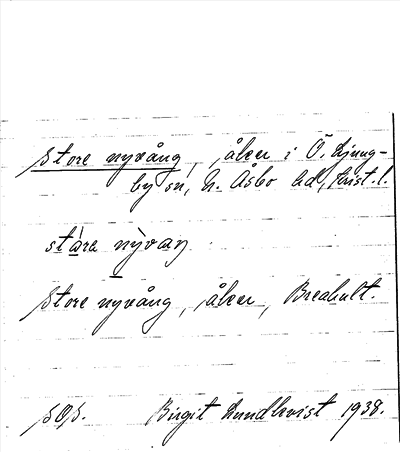 Store nyvång, åker i Ö. Ljung-
by sn, N. Åsbo hd, Krist. l.
ståra nỳvaŋ
Store nyvång, åker, Breahult.
SOS. Birgit Lundkvist 1938.